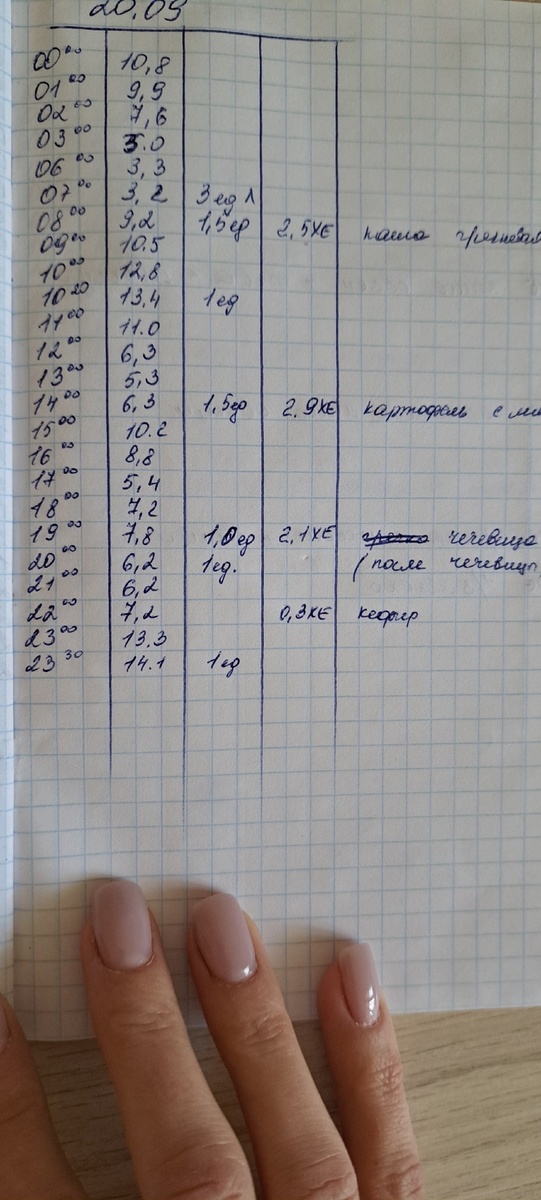 20.09
00⁰⁰ 10,8
01⁰⁰ 9,9
02⁰⁰ 7,6
03⁰⁰ 5.0
06⁰⁰ 3,3
07⁰⁰ 3,2 3 ед Л
08⁰⁰ 9,2 1,5ед 2,5ХЕ каша гречневая
09⁰⁰ 10.5
10⁰⁰ 12,8
10²⁰ 13,4 1ед
11⁰⁰ 11.0
12⁰⁰ 6,3
13⁰⁰ 5,3
14⁰⁰ 6,3 1,5ед 2.9ХЕ картофель с
15⁰⁰ 10.2
16⁰⁰ 8,8
17⁰⁰ 5,4
18⁰⁰ 7,2
19⁰⁰ 7,8 1,0ед 2,1ХЕ чечевица
20⁰⁰ 6,2 1ед. (после чечевицы
21⁰⁰ 6,2
22⁰⁰ 7,2 0,3ХЕ кефир
23⁰⁰ 13.3
23³⁰ 14.1 1ед